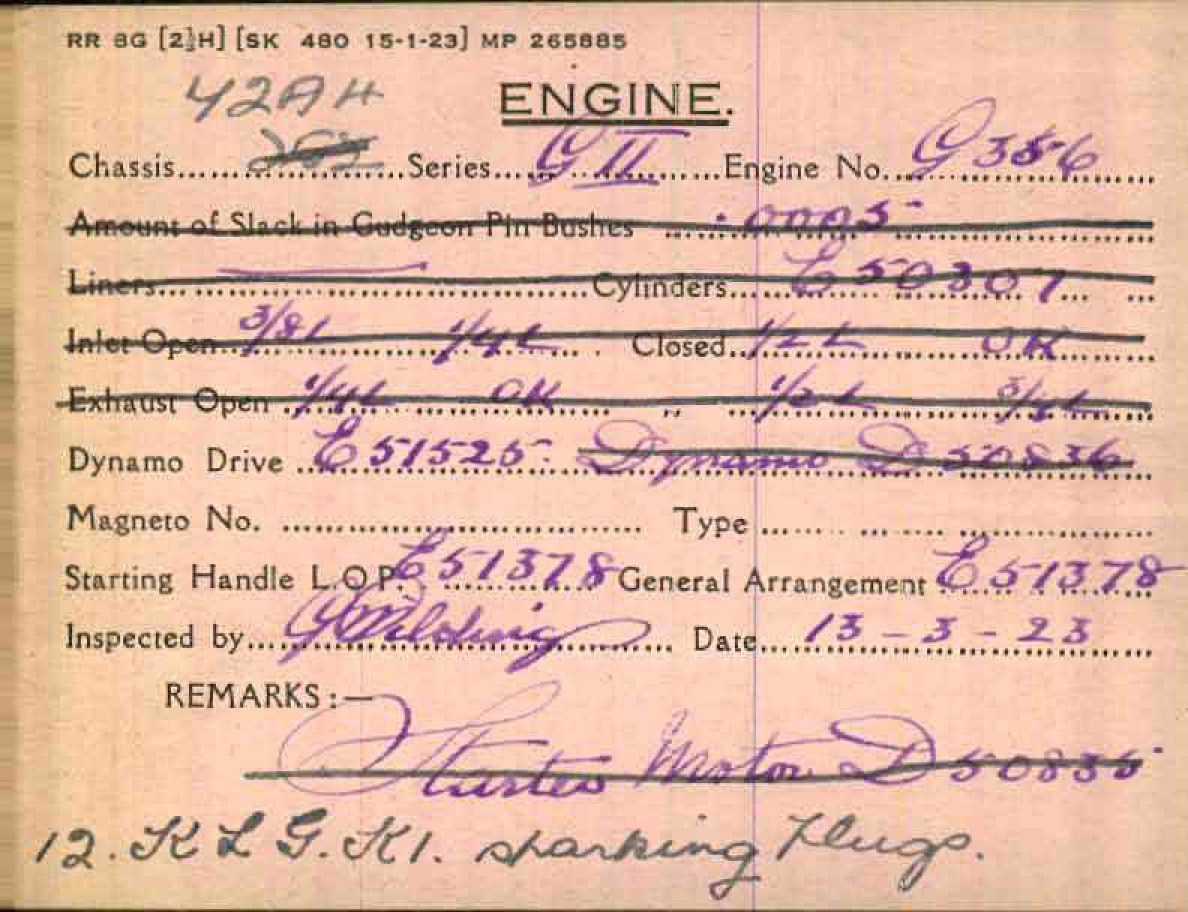 RR 8G [2½H] [SK 480 15-1-23] MP 265885
42AH
ENGINE.
Chassis.................... Series.... G II ........Engine No... G 356
Amount of Slack in Gudgeon Pin Bushes ..... .0005
Liners.................... Cylinders.... E50307
Inlet Open.. 3/8L 1/4L Closed.. 1/2 L OK
Exhaust Open .. 1/4L OK ,, 1/2 L 3/4L
Dynamo Drive .. E51525 Dynamo D 50836
Magneto No. .................... Type ....................
Starting Handle L.O.P. E51378 General Arrangement E51378
Inspected by.... G Wilding .... Date.... 13-3-23
REMARKS :—
Starter Motor D 50835
12. K L G. K1. sparking Plugs.